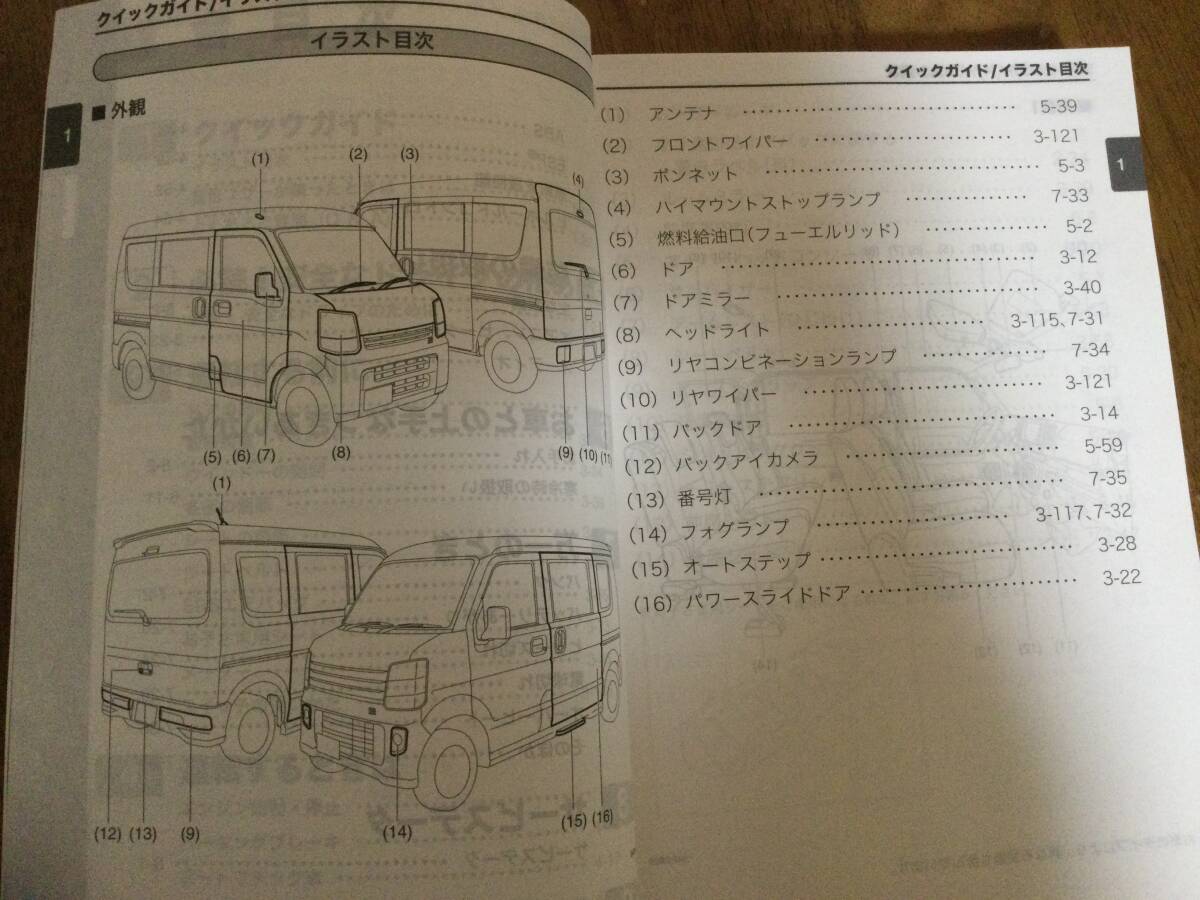 クイックガイド/イラスト
イラスト目次
■外観
1
(1)
(2)
(3)
(4)
(5)
(6)
(7)
(8)
(9)
(10)
(11)
(1)
(12)
(13)
(9)
(14)
(15)
(16)
クイックガイド/イラスト目次
1
(1) アンテナ 5-39
(2) フロントワイパー 3-121
(3) ボンネット 5-3
(4) ハイマウントストップランプ 7-33
(5) 燃料給油口(フューエルリッド) 5-2
(6) ドア 3-12
(7) ドアミラー 3-40
(8) ヘッドライト 3-115、7-31
(9) リヤコンビネーションランプ 7-34
(10) リヤワイパー 3-121
(11) バックドア 3-14
(12) バックアイカメラ 5-59
(13) 番号灯 7-35
(14) フォグランプ 3-117、7-32
(15) オートステップ 3-28
(16) パワースライドドア 3-22